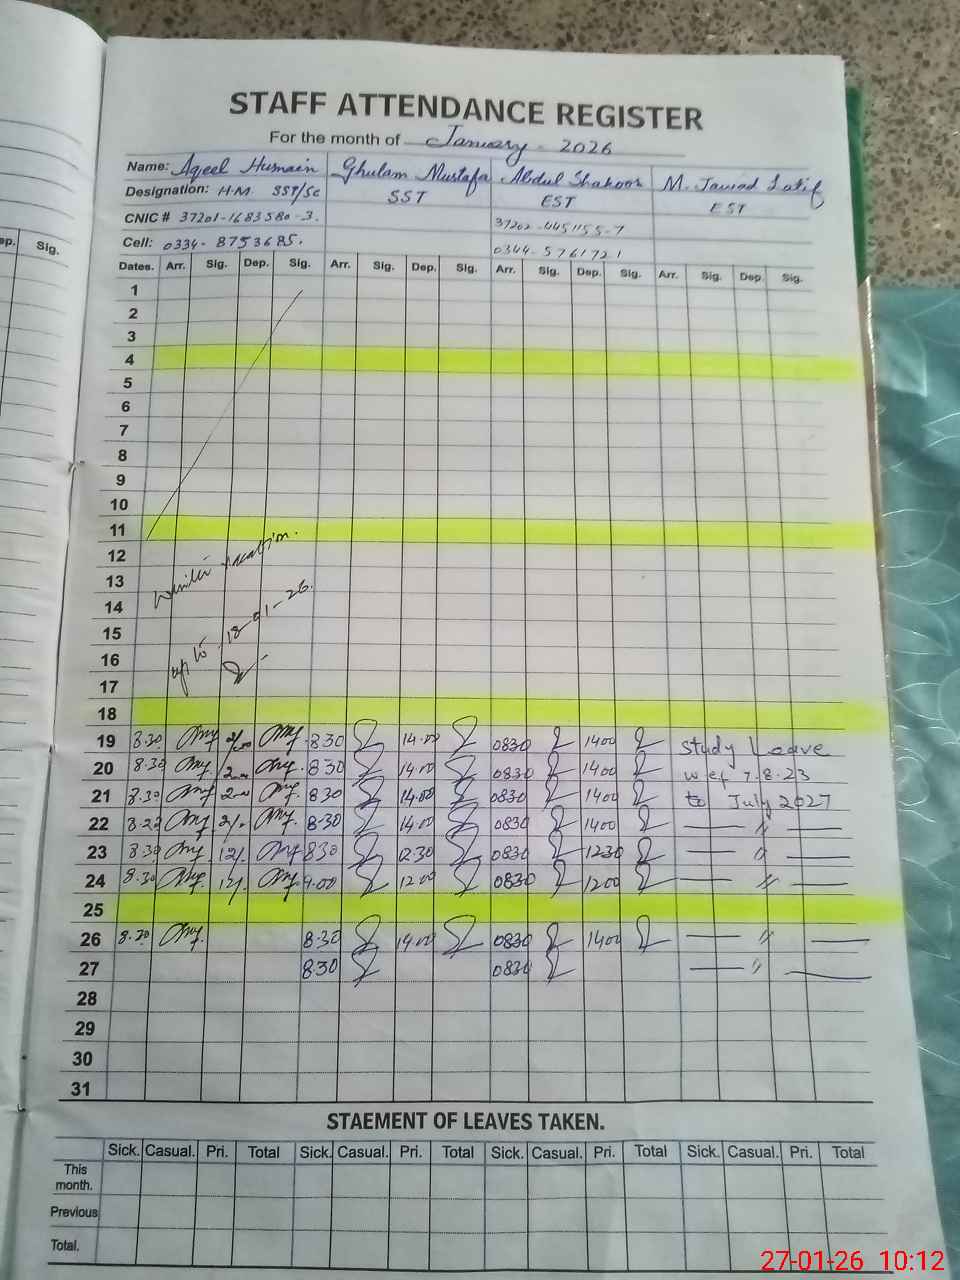 STAFF ATTENDANCE REGISTER
For the month of January - 2026
Name: Aqeel Husnain Ghulam Mustafa Abdul Shakoor M. Jawad Latif
Designation: H.M SST/Sc SST EST EST
CNIC # 37201-1683580-3. 37202-4451155-7
Cell: 0334-8753685. 0344-5761721
ep. Sig.
Dates. Arr. Sig. Dep. Sig. Arr. Sig. Dep. Sig. Arr. Sig. Dep. Sig. Arr. Sig. Dep. Sig.
1
2
3
4
5
6
7
8
9
10
11
12
winter vacation.
13
14
up to 18-01-26.
15
16
17
18
19 8.30 8 30 14.00 0830 1400 Study Leave
20 8.30 8 30 14.00 0830 1400 wef 7.8.23
21 8.30 8 30 14.00 0830 1400 to July 2027
22 8.30 14.00 0830 1400 — 〃 —
23 8.30 12/. 8 30 12.30 0830 1230 — 〃 —
24 8.30 12/. 9.00 12 00 0830 1200 — 〃 —
25
26 8.30 14.00 0830 1400 — 〃 —
27 8 30 0830 — 〃 —
28
29
30
31
STAEMENT OF LEAVES TAKEN.
Sick. Casual. Pri. Total Sick. Casual. Pri. Total Sick. Casual. Pri. Total Sick. Casual. Pri. Total
This
month.
Previous
Total.
27-01-26 10:12